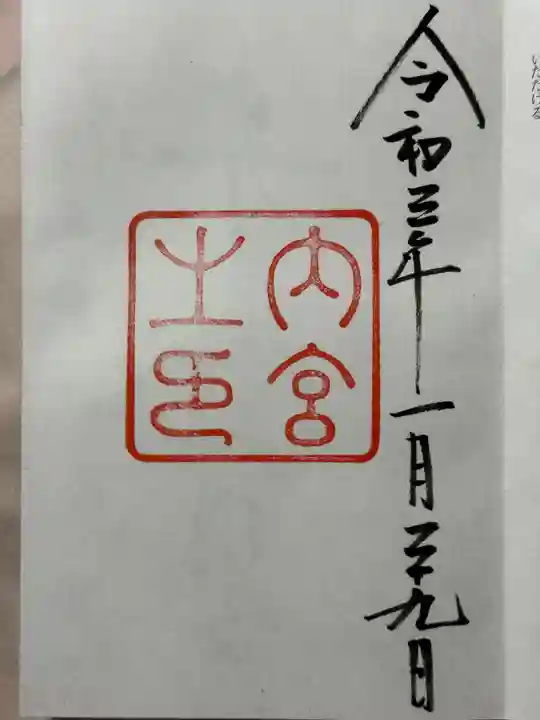 いただける
令和三年一月二十九日
内宮
之印